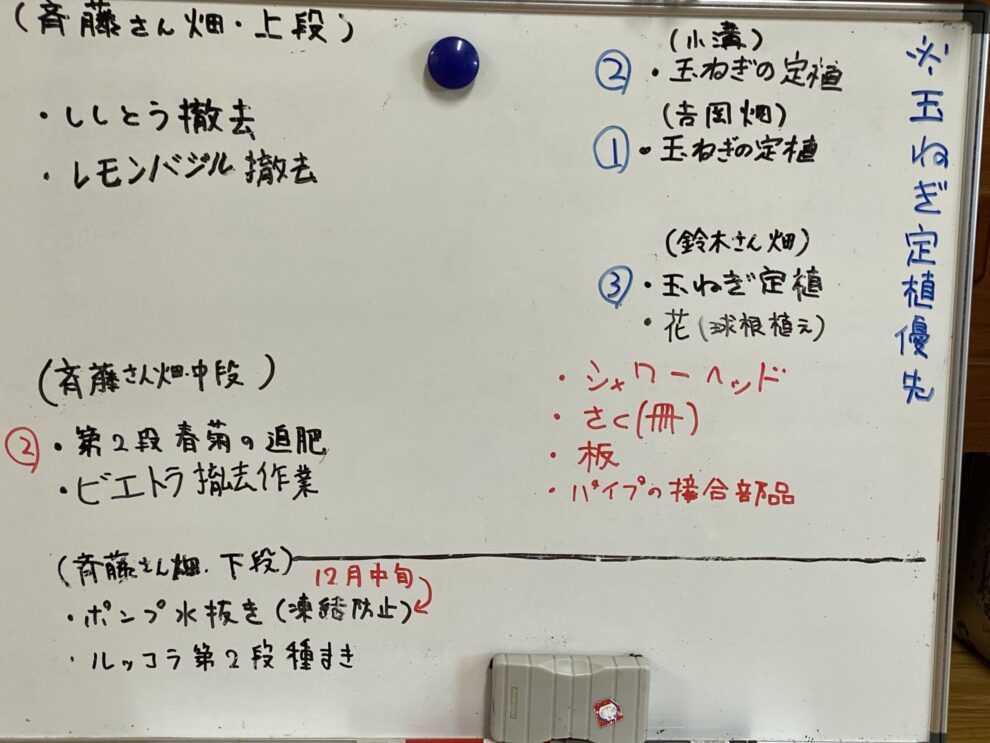 (斉藤さん畑・上段)
・ししとう撤去
・レモンバジル撤去
(斉藤さん畑・中段)
② ・第2段春菊の追肥
・ビエトラ撤去作業
(斉藤さん畑・下段)
12月中旬
・ポンプ水抜き(凍結防止)
・ルッコラ第2段種まき
(小溝)
② ・玉ねぎの定植
(吉岡畑)
① ・玉ねぎの定植
(鈴木さん畑)
③ ・玉ねぎ定植
・花(球根植え)
・シャワーヘッド
・さく(冊)
・板
・パイプの接合部品
※玉ねぎ定植優先